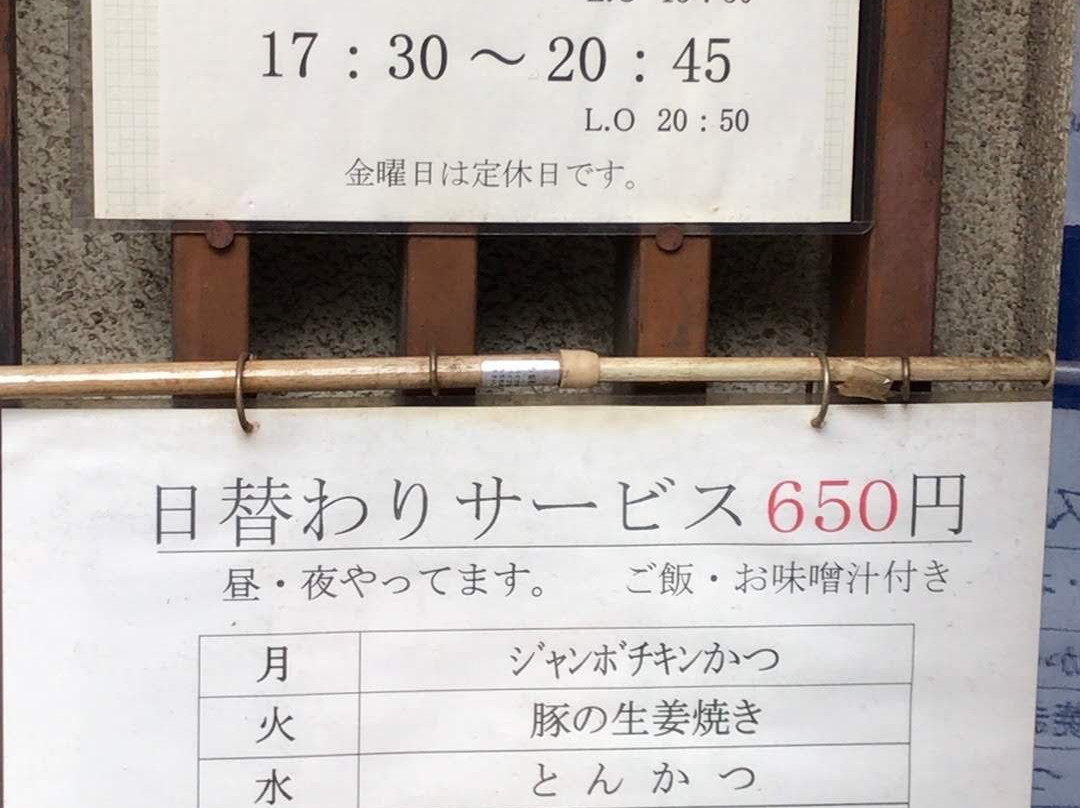 17：30～20：45
L.O 20：50
金曜日は定休日です。
日替わりサービス650円
昼・夜やってます。 ご飯・お味噌汁付き
月 ジャンボチキンかつ
火 豚の生姜焼き
水 とんかつ